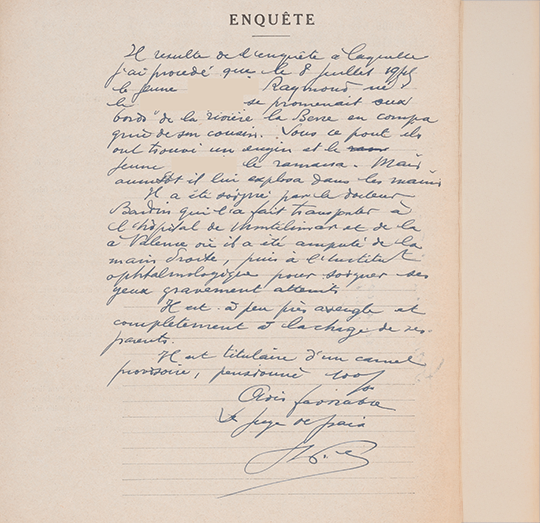 ENQUÊTE
Il résulte de l'enquête à laquelle
j'ai procédé que le 8 juillet 1945
le jeune Raymond né
le se promenait aux
bords de la rivière la Berre en compa
gnie de son cousin. Sous ce pont ils
ont trouvé un engin et le
jeune le ramassa. Mais
aussitôt il lui explosa dans les mains
Il a été soigné par le docteur
qui l'a fait transporter à
l'hôpital de Montélimar et de là
à Valence où il a été amputé de la
main droite, puis à l'Institut
ophtalmologique pour soigner ses
yeux gravement atteints
Il est à peu près aveugle et
complètement à la charge de ses
parents.
Il est titulaire d'un carnet
provisoire, pensionné 100%
Avis favorable
Le juge de paix